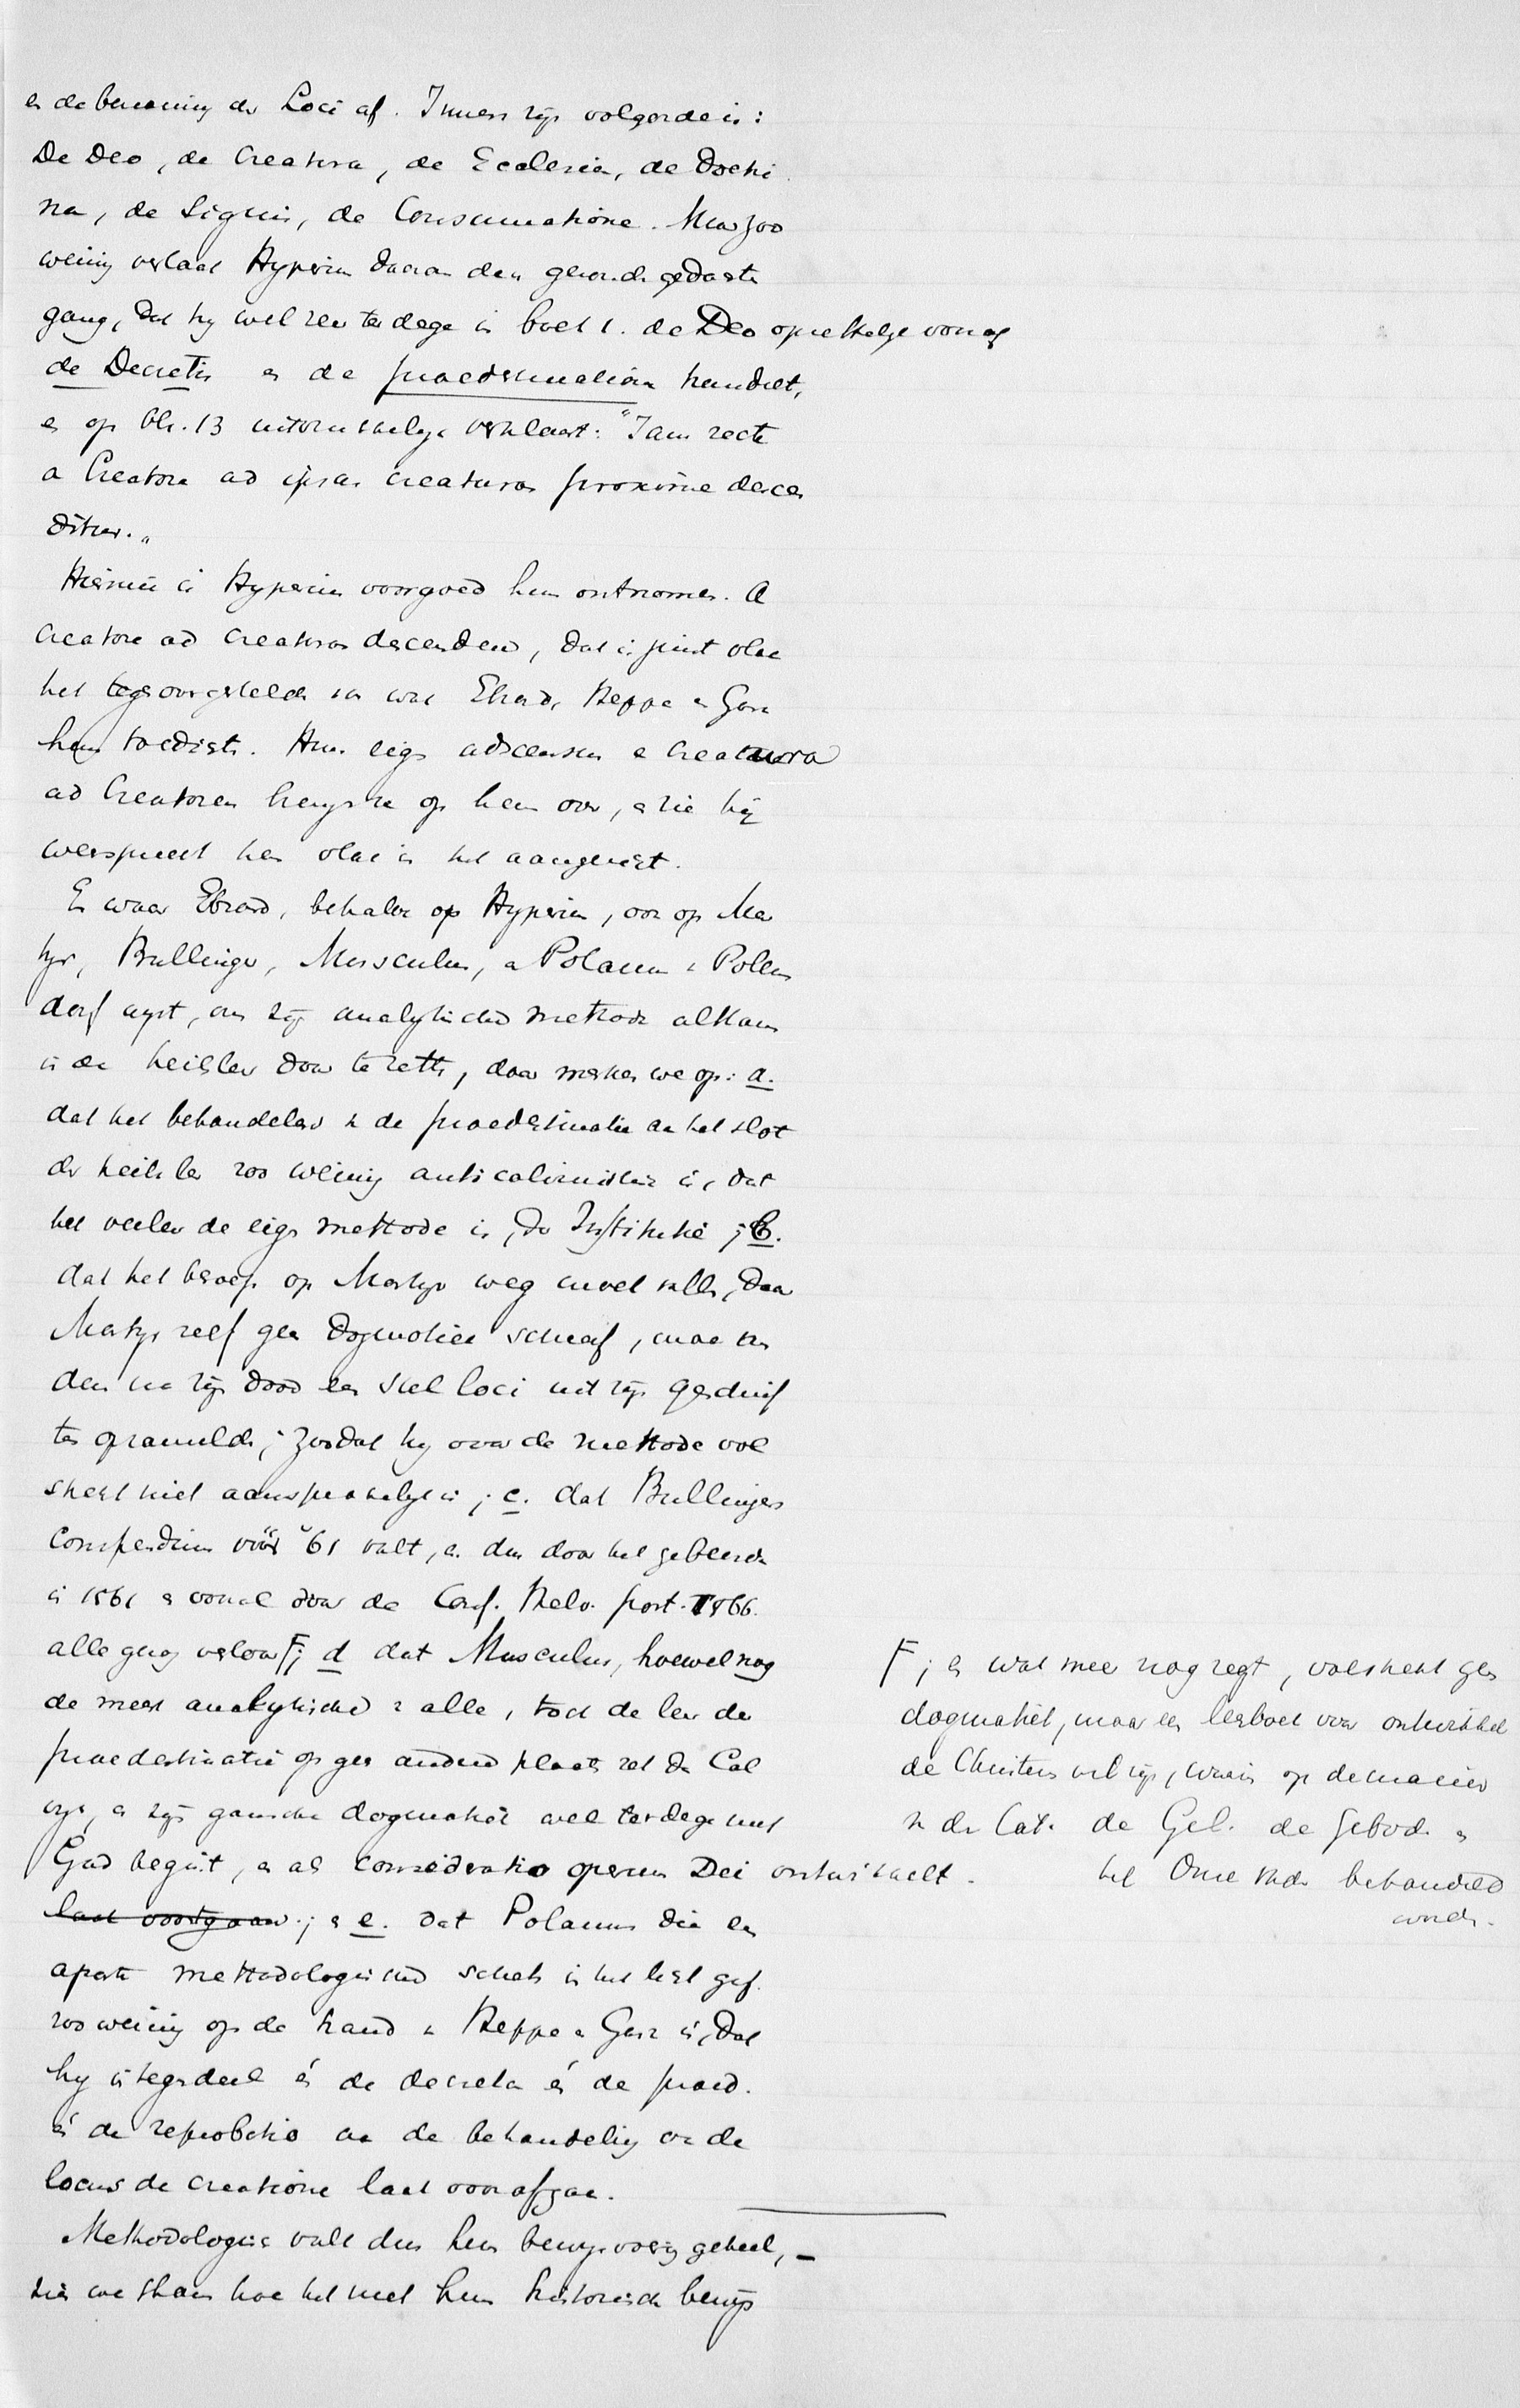 en de benaming der Loci af. Immers zijn volgorde is:
De Deo, de Creatura, de Ecclesia, de Doctri
na, de Signis, de Consummatione. Maar zoo
weinig verlaat Hyperius daarom den gezonden gedachten
gang, dat hij wel zeer terdege in boek 1. de Deo opzettelijk vooraf
de Decretis en de praedestinatione handelt,
en op blz. 13 uitdrukkelijk verklaart: "Iam recte
a Creatore ad ipsas creaturas proxime descen
ditur."
Hiermeê is Hyperius voorgoed hun ontnomen. A
Creatore ad creaturas descendere, dat is juist vlak
het tegenovergestelde van wat Ebrard, Heppe en Gass
hem toedichten. Hun eigen adscensus a creatura
ad Creatorem brengen ze op hem over, en zie hij
weerspreekt hen vlak in het aangezicht.
En waar Ebrard, behalve op Hyperius, ook op Mar
tyr, Bullinger, Musculus, en Polanus à Polans
dorf wijst, om zijn analytische methode althans
in de heilsleer door te zetten, daar merken we op: a.
dat het behandelen van de praedestinatie aan het slot
der heilsleer zoo weinig anticalvinistisch is, dat
het veeleer de eigen methode is der Institutie; b.
dat het beroep op Martyr weg moet vallen, daar
Martyr zelf geen Dogmatiek schreef, maar
den na zijn dood een stel loci uit zijn geschrif
ten opzamelde; zoodat hij voor de methode vol
strekt niet aansprakelijk is; c. dat Bullingers
Compendium vóór '61 valt, en dus door het gebeurde
in 1561 en vooral door de Conf. Helv. post. 1566.
alle gezag verloor F; d dat Musculus, hoewel nog
de meest analytische van alle, toch de leer der
praedestinatie op geen andere plaats zet dan Cal
vijn, en zijn gansche dogmatiek wel terdege met
God begint, en als consideratio operum Dei ontwikkelt.
laat voortgaan.; en e. dat Polanus die een
aparte methodologische schets in het licht gaf.
zoo weinig op de hand van Heppe en Gass is, dat
hij integendeel én de decreta én de praed.
én de reprobatio aan de behandeling van de
locus de creatione laat voorafgaan.
Methodologisch valt dus hun bewijsvoering geheel, –
zien we thans hoe het met hun historisch bewijs
F; en wat meer nog zegt, volstrekt geen
dogmatiek, maar een leerboek voor ontwikkel
de Christenen wil zijn, waarin op de manier
van den Cat. de Gel. de Geboden en
het Onze Vader behandeld
worden.